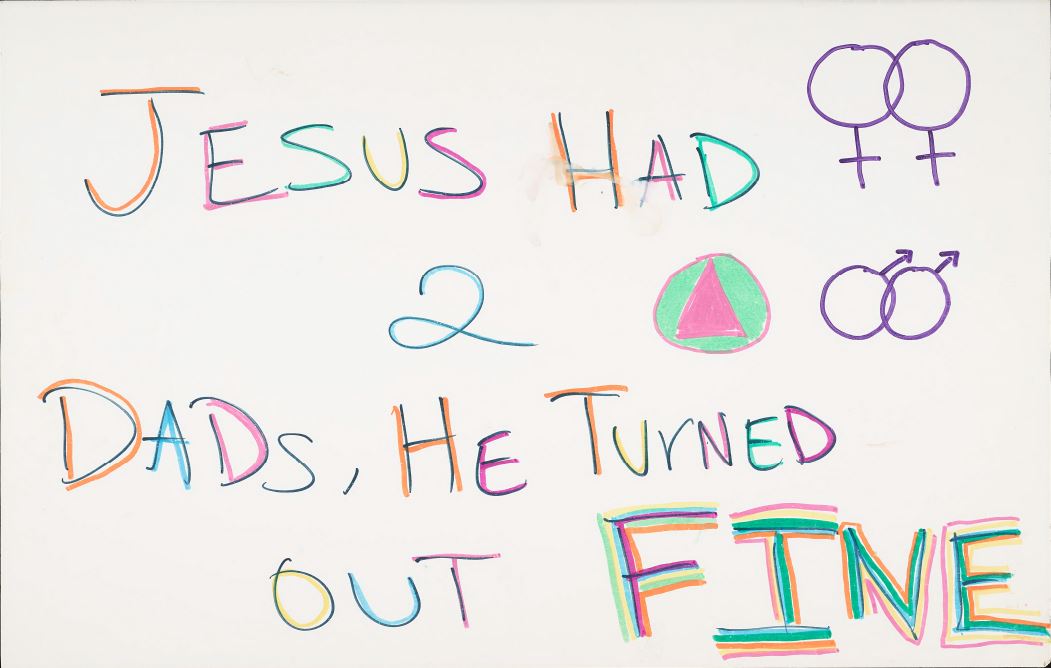 JESUS HAD
2
DADS, HE TURNED
OUT FINE